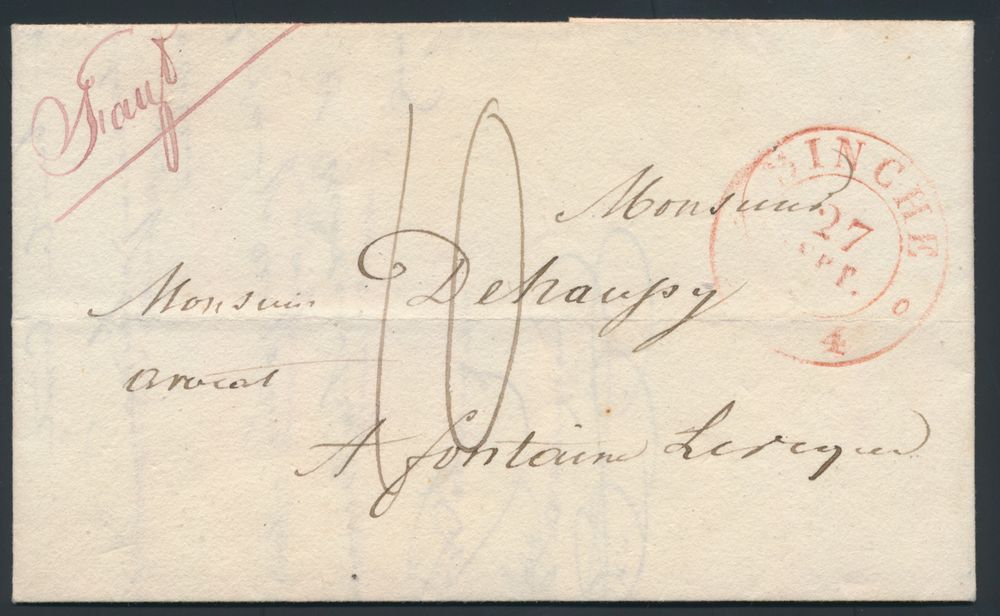 Franco
BINCHE
27
SEPT.
4
10
Monsieur
Monsieur Dehaussy
avocat
A fontaine Leveque